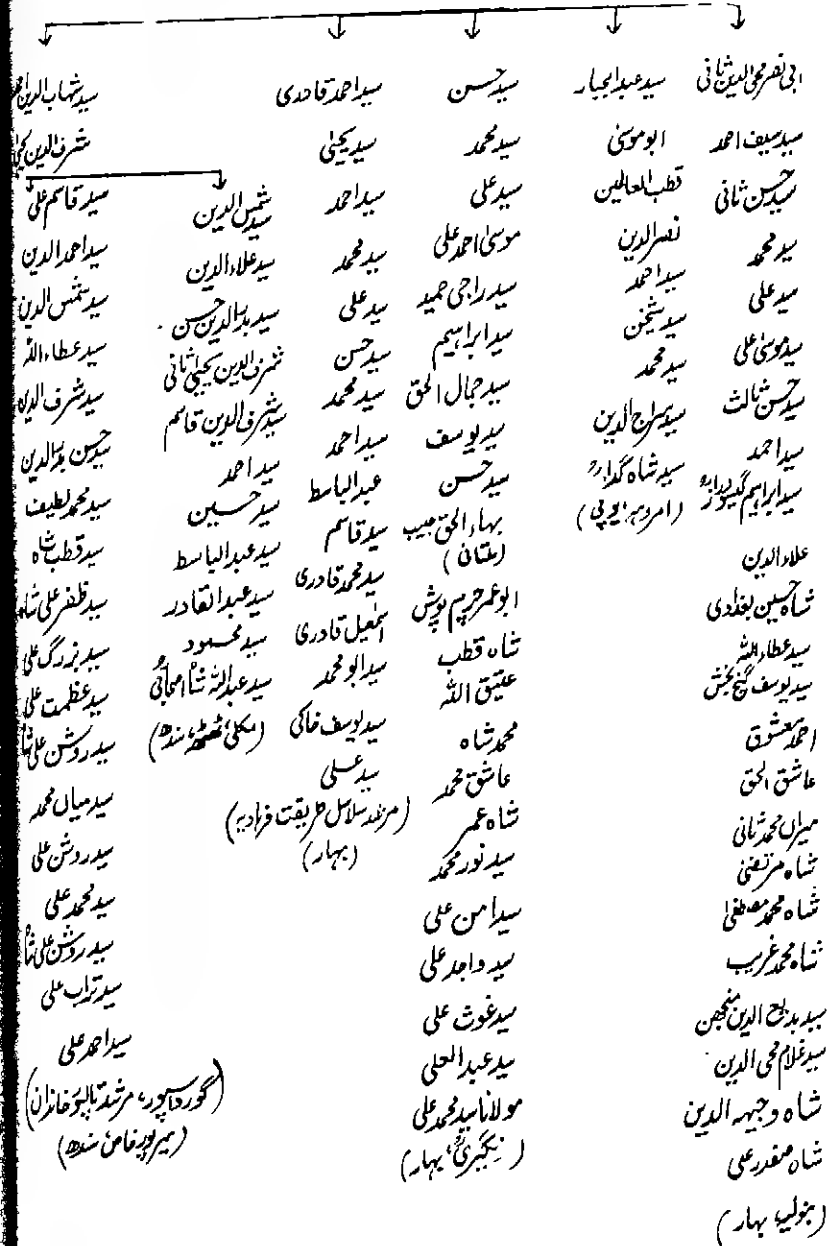 ابی نصر محی الدین ثانی
سید سیف احمد
سید حسن ثانی
سید محمد
سید علی
سید موسیٰ علی
سید حسن ثالث
سید احمد
سید ابراہیم گیسو دراز
علاءالدین
شاہ حسین بغدادی
سید عطاءاللہ
سید یوسف گنج بخش
احمد معشوق
عاشق الحق
میراں محمد ثانی
شاہ مرتضیٰ
شاہ محمد مصطفیٰ
شاہ محمد غریب
سید بدیع الدین منجھن
سید غلام محی الدین
شاہ وجیہہ الدین
شاہ صفدر علی
بہار)
سید عبدالجبار
ابو موسیٰ
قطب العالمین
نصرالدین
سید احمد
سید شخن
سید محمد
سید سراج الدین
سید شاہ گدا رؒ
(امروہہ یوپی)
سید حسن
سید محمد
سید علی
موسیٰ احمد علی
سید راجی حمید
سید ابراہیم
سید جمال الحق
سید یوسف
سید حسن
بہاء الحق حبیب
(ملتانی)
ابو عمر چرم پوش
شاہ قطب
عتیق اللہ
محمد شاہ
عاشق محمد
شاہ عمر
سید نور محمد
سید امن علی
سید واجد علی
سید غوث علی
سید عبدالعلی
مولانا سید محمد علی
بہار)
سید احمد قادری
سید یحییٰ
سید احمد
سید محمد
سید علی
سید حسن
سید محمد
سید احمد
عبدالباسط
سید قاسم
سید محمد قادری
اسمٰعیل قادری
سید ابو محمد
سید یوسف خاکی
سید علی
سلاسل طریقت
(بہار)
سید شہاب الدین
شرف الدین یحییٰ
سید شمس الدین
سید علاءالدین
سید بدرالدین حسن
شرف الدین یحییٰ ثانی
سید شرف الدین قاسم
سید احمد
سید حسین
سید عبدالباسط
سید عبدالقادر
سید محمود
سید عبداللہ شاہ اصحابی
(مکلی، ٹھٹھہ، سندھ)
سید قاسم علی
سید احمد الدین
سید شمس الدین
سید عطاءاللہ
سید شرف الدین
سید حسن بدرالدین
سید محمد لطیف
سید قطب شاہ
سید ظفر علی شاہ
سید بزرگ علی
سید عظمت علی
سید روشن علی شاہ
سید میاں محمد
سید روشن علی
سید محمد علی
سید روشن علی شاہ
سید تراب علی
سید احمد علی
(گورداسپور، مرشد تالپور خاندان)
(میرپور خاص سندھ)